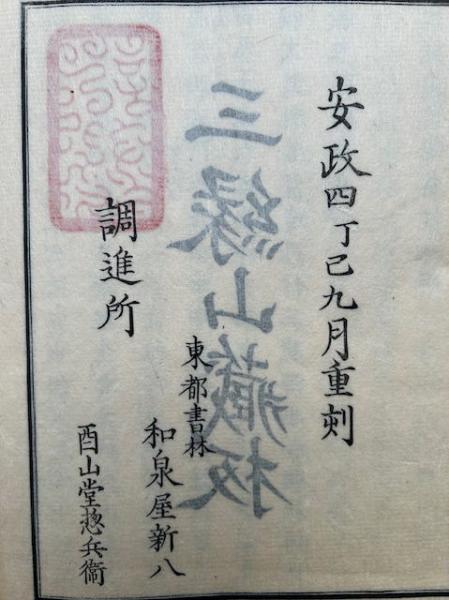 安政四丁巳九月重刻
三縁山藏板
東都書林
和泉屋新八
酉山堂惣兵衞
調進所